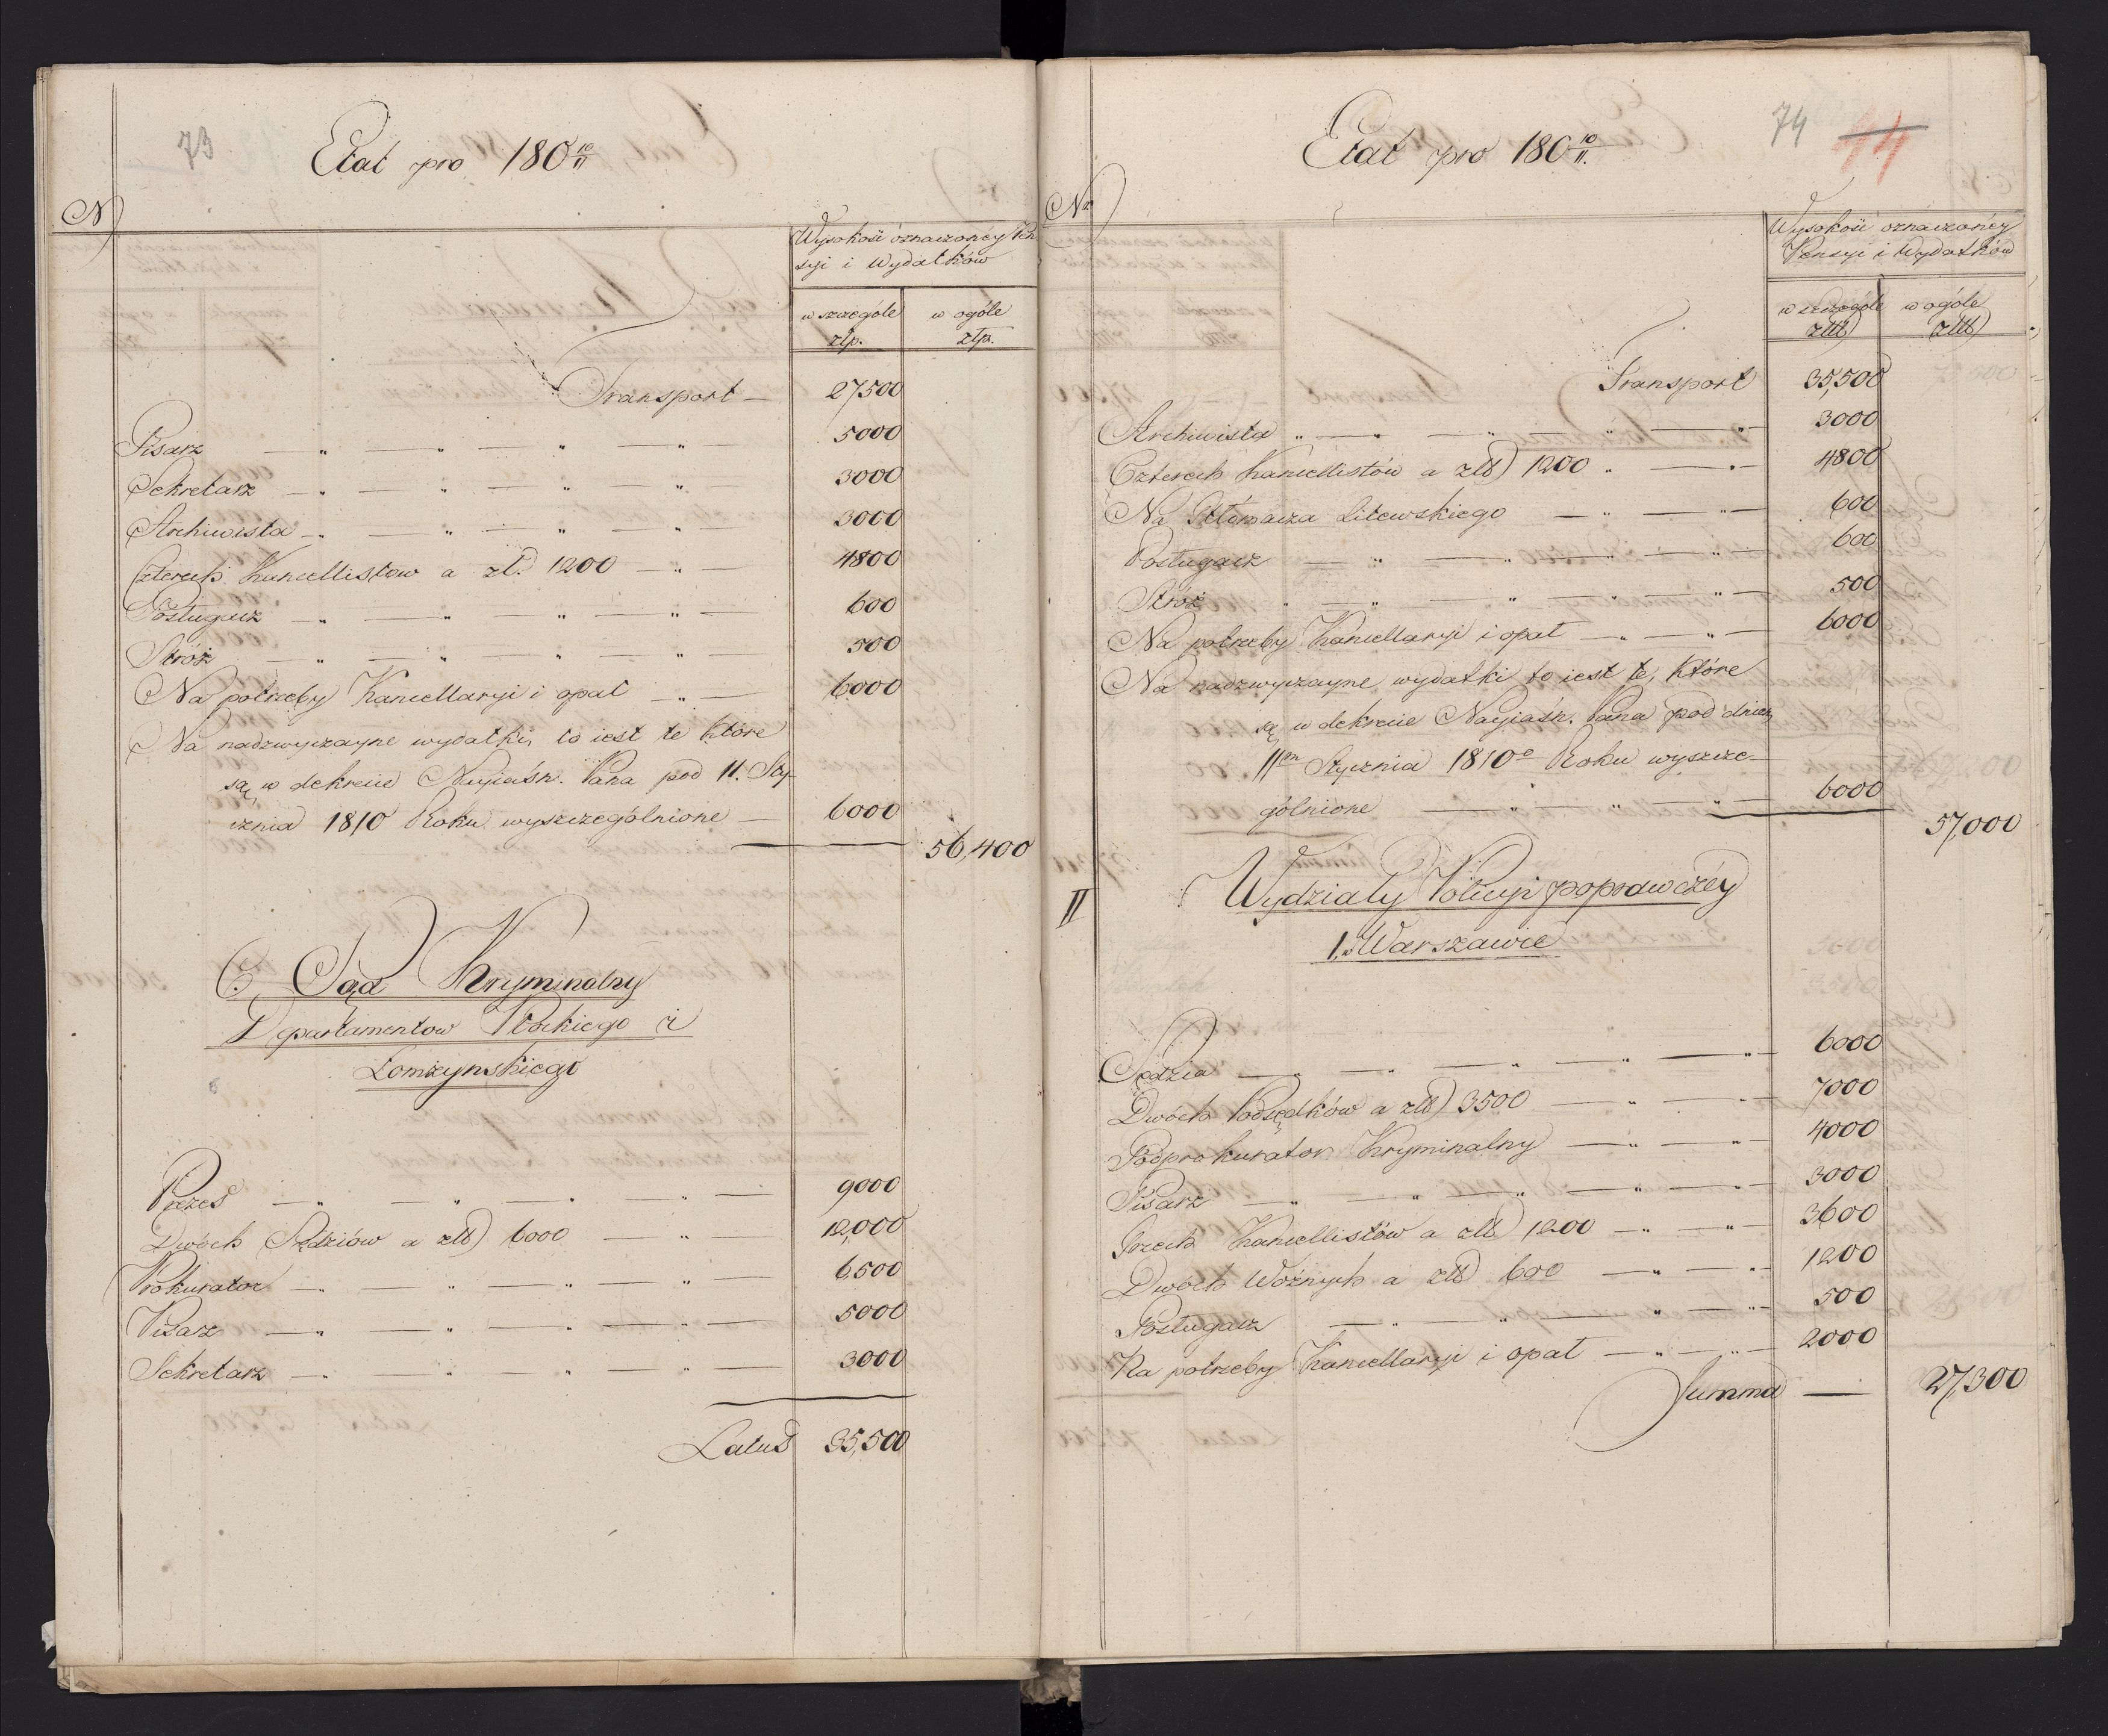 73
Etat pro 180 10/11
N
Wysokość oznaczonéy Pen
syi i Wydatków
w szczególe w ogóle
złp. złp.
Transport — 27,500
Pisarz — „ — „ — „ — „ — 5000
Sekretarz — „ — „ — „ — „ — 3000
Archiwista — „ — „ — „ — „ — 3000
Czterech Kancellistow a zł. 1200 — „ — 4800
Posługacz — „ — „ — „ — „ — 600
Stróż — „ — „ — „ — „ — 500
Na potrzeby Kancellaryi i opał — „ — 6000
Na nadzwyczayne wydatki, to iest te które
są w dekrecie Nayiaśn. Pana pod 11. Sty
cznia 1810 Roku wyszczególnione — 6000
56,400
C, Sąd Kryminalny
Departamentow Płockiego i
Łomżynskiego
Prezes — „ — „ — „ — „ — 9000
Dwóch Sędziów a złł 6000 — „ — 12,000
Prokurator — „ — „ — „ — „ — 6,500
Pisarz — „ — „ — „ — „ — 5000
Sekretarz — „ — „ — „ — „ — 3000
Latus 35,500
74 44
Etat pro 180 10/11.
No
Wysokość oznaczonéy
Pensyi i Wydatków
w szczególe w ogóle
złł złł
Transport 35,500
Archiwista „ — „ — „ — „ — „ 3000
Czterech Kancellistów a złł 1200 „ — „ — 4800
Na Tłómacza Litewskiego — „ — „ — 600
Posługacz — „ — „ — „ — „ — 600
Stróż „ — „ — „ — „ — „ — 500
Na potrzeby Kancellaryi i opał — „ — „ — 6000
Na nadzwyczayne wydatki to iest te, które
są w dekrecie Nayiaśn. Pana pod dniem
11m Stycznia 1810o Roku wyszcze-
gólnione — „ — „ — „ — 6000
57,000
II Wydziały Policyi poprawczéy
1. w Warszawie
Sędzia — „ — „ — „ — „ — „ 6000
Dwóch Podsędków a złł 3500 — „ — „ 7000
Podprokurator Kryminalny — „ — „ — 4000
Pisarz — „ — „ — „ — „ — „ — 3000
Trzech Kancellistów a złł 1200 — „ — „ — 3600
Dwóch Woźnych a złł 600 — „ — „ 1200
Posługacz — „ — „ — „ — „ — 500
Na potrzeby Kancellaryi i opał — „ — „ — 2000
Summa — 27,300